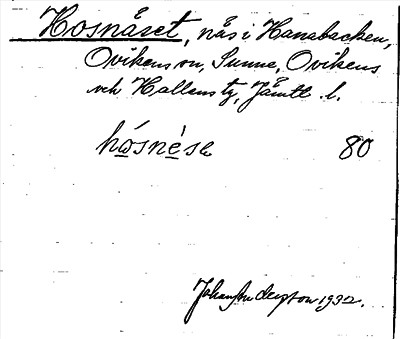 Hosnåset, nås i Hanabacken,
Ovikens sn, Sunne, Ovikens
och Hallens tg, Jämtl. l.
hósnése 80
Johan Anderzon 1932.